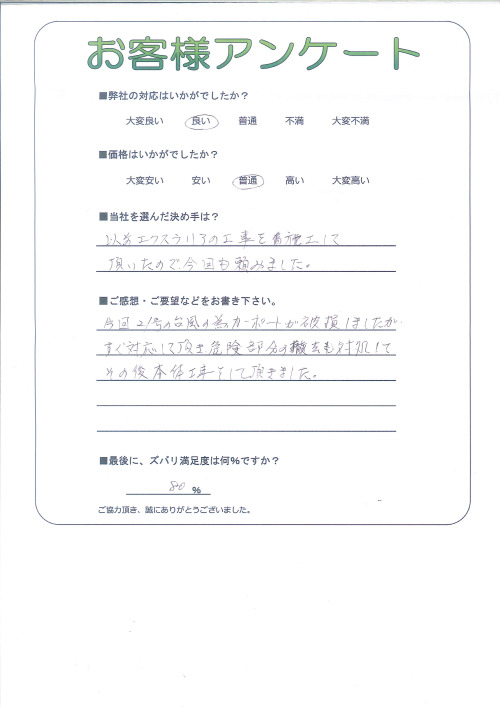 お客様アンケート
■弊社の対応はいかがでしたか？
大変良い　良い　普通　不満　大変不満
■価格はいかがでしたか？
大変安い　安い　普通　高い　大変高い
■当社を選んだ決め手は？
以前エクステリアの工事を施工して
頂いたので今回も頼みました。
■ご感想・ご要望などをお書き下さい。
今回21号の台風の為カーポートが破損しましたが
すぐ対応して頂き危険部分の撤去も対処して
その後本体工事をして頂きました。
■最後に、ズバリ満足度は何%ですか？
80 %
ご協力頂き、誠にありがとうございました。